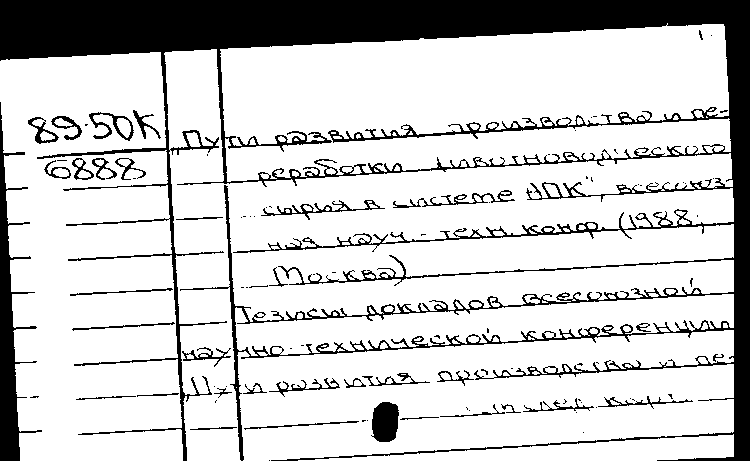 1
89-50К
6888
„Пути развития производства и пе-
реработки животноводческого
сырья в системе АПК", всесоюз-
ная науч.-техн. конф. (1988;
Москва)
Тезисы докладов всесоюзной
научно-технической конференции
„Пути развития производства и пе-
след. карт.